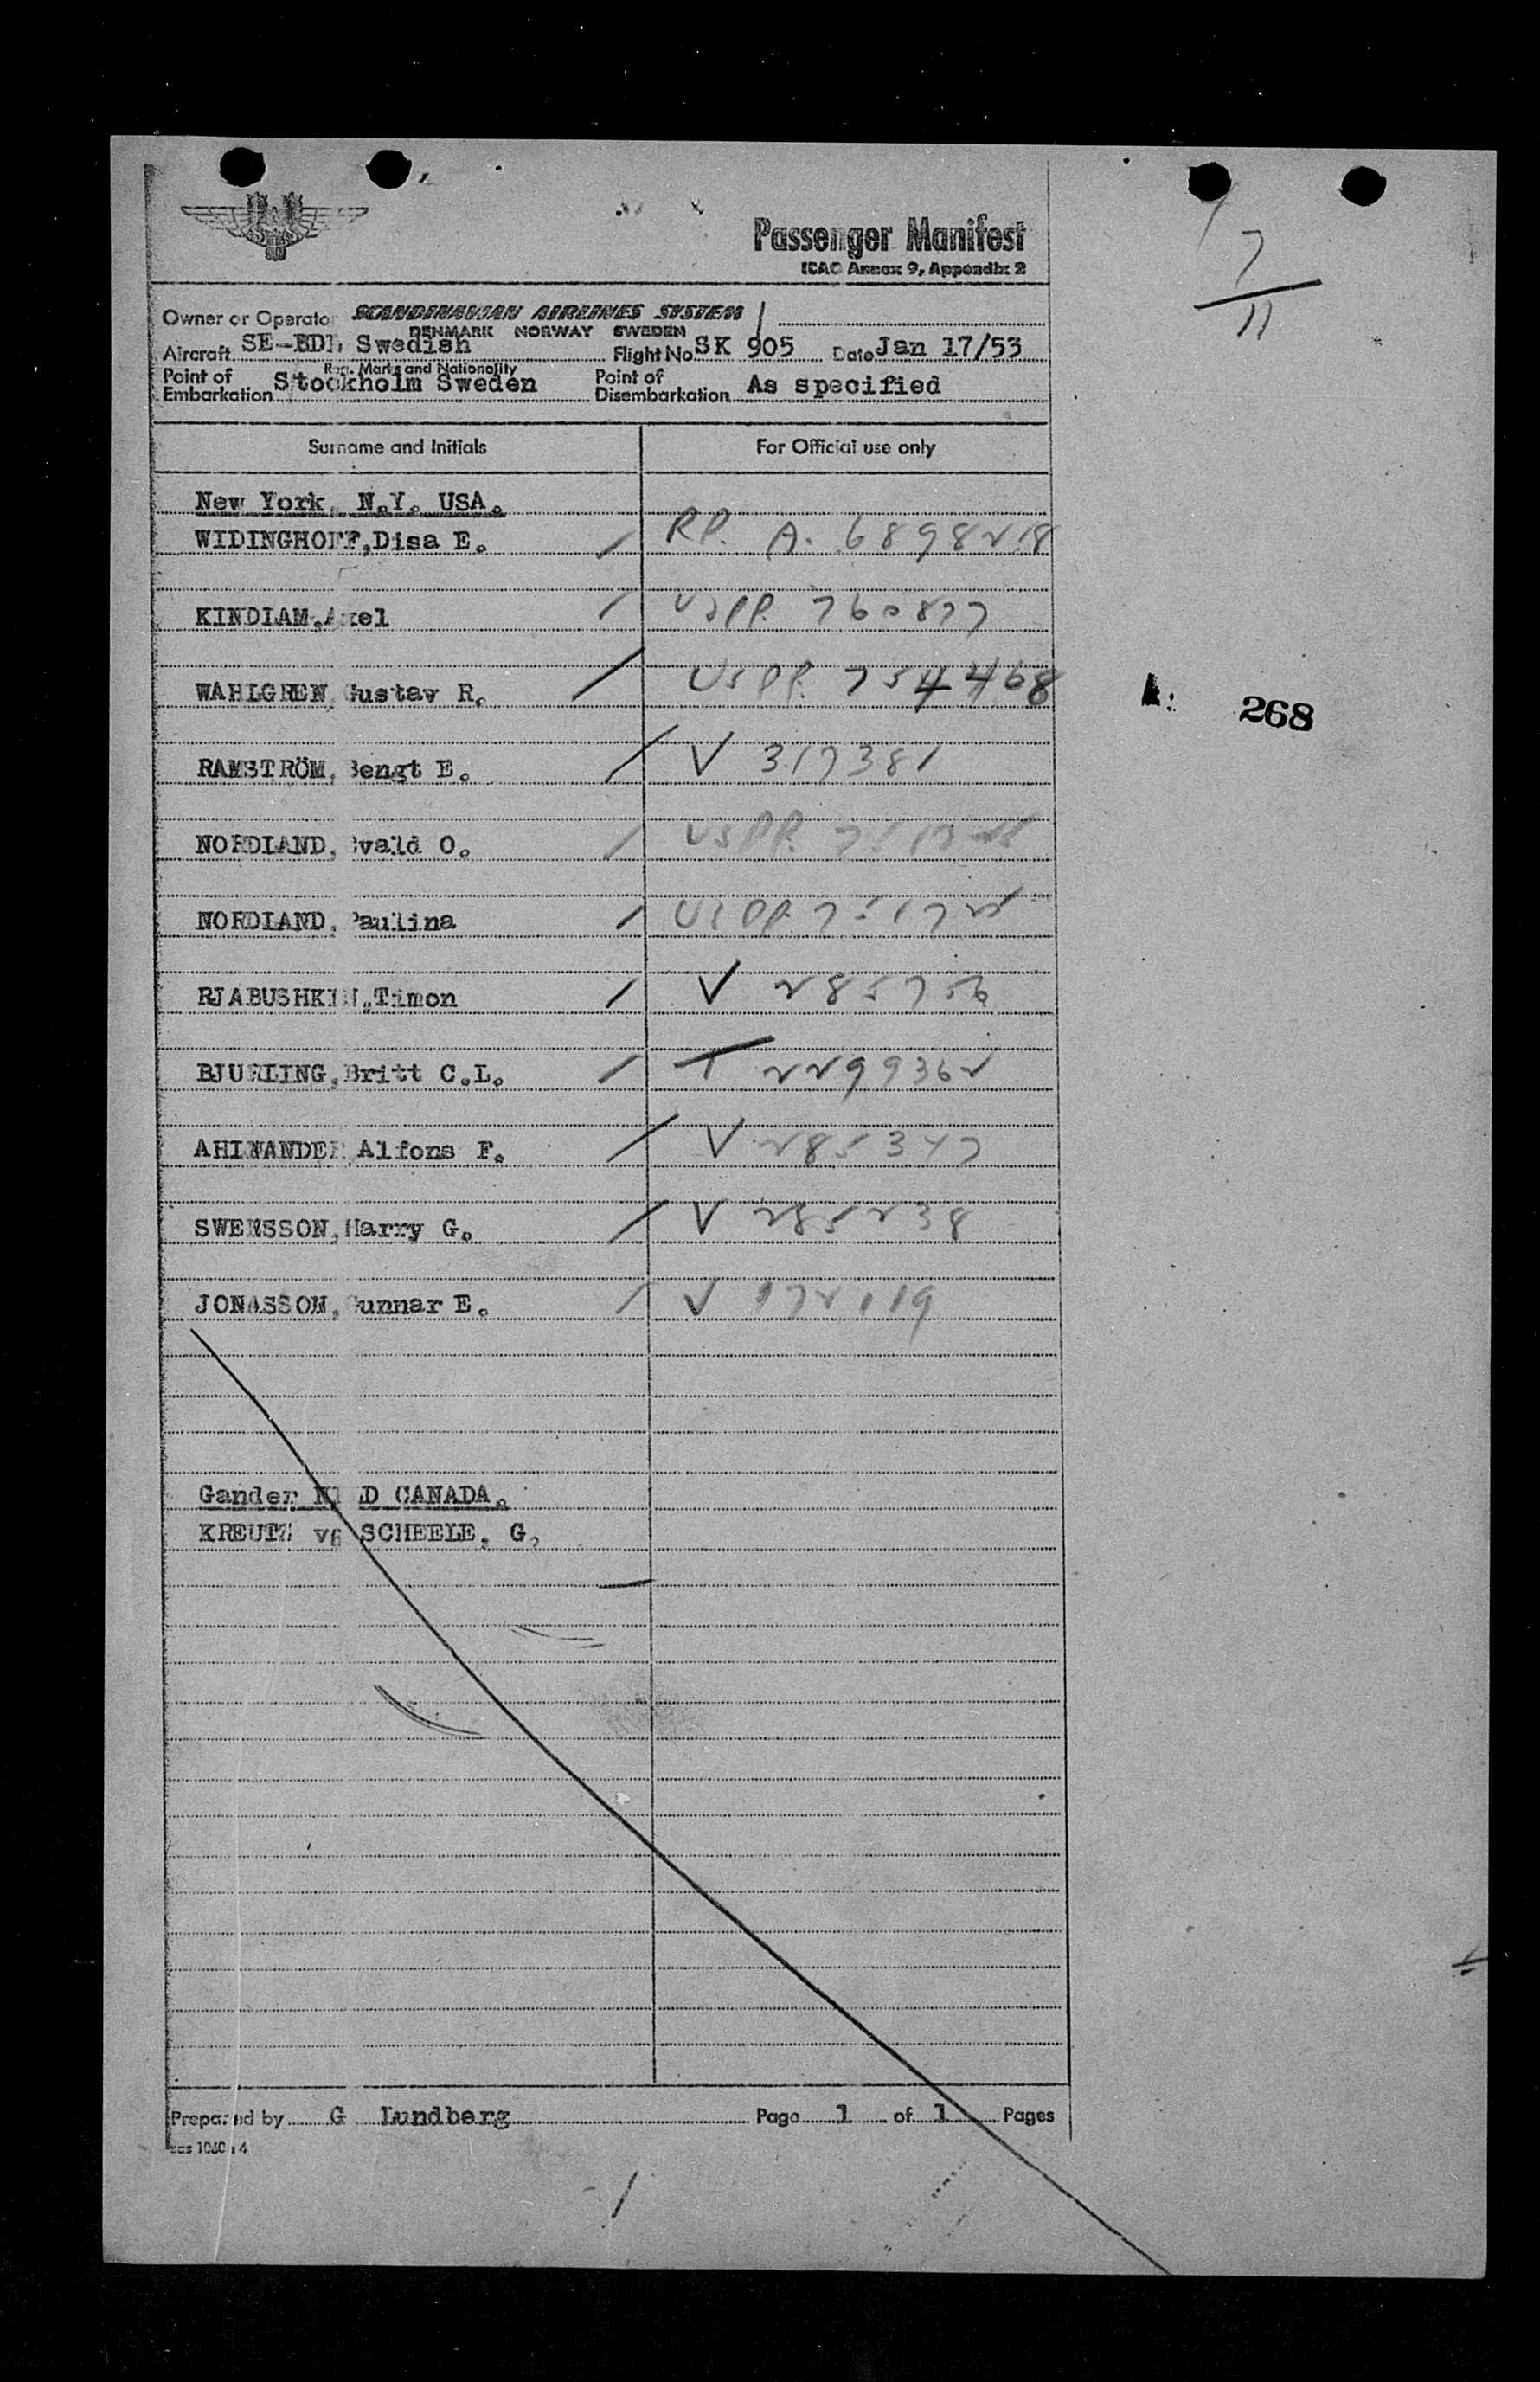 Passenger Manifest
ICAO Annex 9, Appendix 2
7
11
Owner or Operator SCANDINAVIAN AIRLINES SYSTEM
DENMARK NORWAY SWEDEN
Aircraft Swedish Flight No SK 905 Date Jan 17/53
Reg. Marks and Nationality
Point of Embarkation Stockholm Sweden Point of Disembarkation As specified
Surname and Initials For Official use only
New York, N.Y. USA.
WIDINGHOFF, Disa E. / RP. A. 6898218
KINDLAM, Axel / USPP. 760877
WAHLGREN, Gustav R. / USPP. 754468
268
RAMSTRÖM, Bengt E. / V 317381
NORDLAND, Evald O. / USPP.
NORDLAND, Paulina / USPP.
RJABUSHKIN, Timon / V 285756
BJURLING, Britt C.L. / T 2299362
Alfons F. / V 285347
SWENSSON, Harry G. / V 285238
JONASSON, Gunnar E. / V 172119
Gander CANADA.
KREUTZ SCHEELE, G.
Prepared by G Lundberg Page 1 of 1 Pages